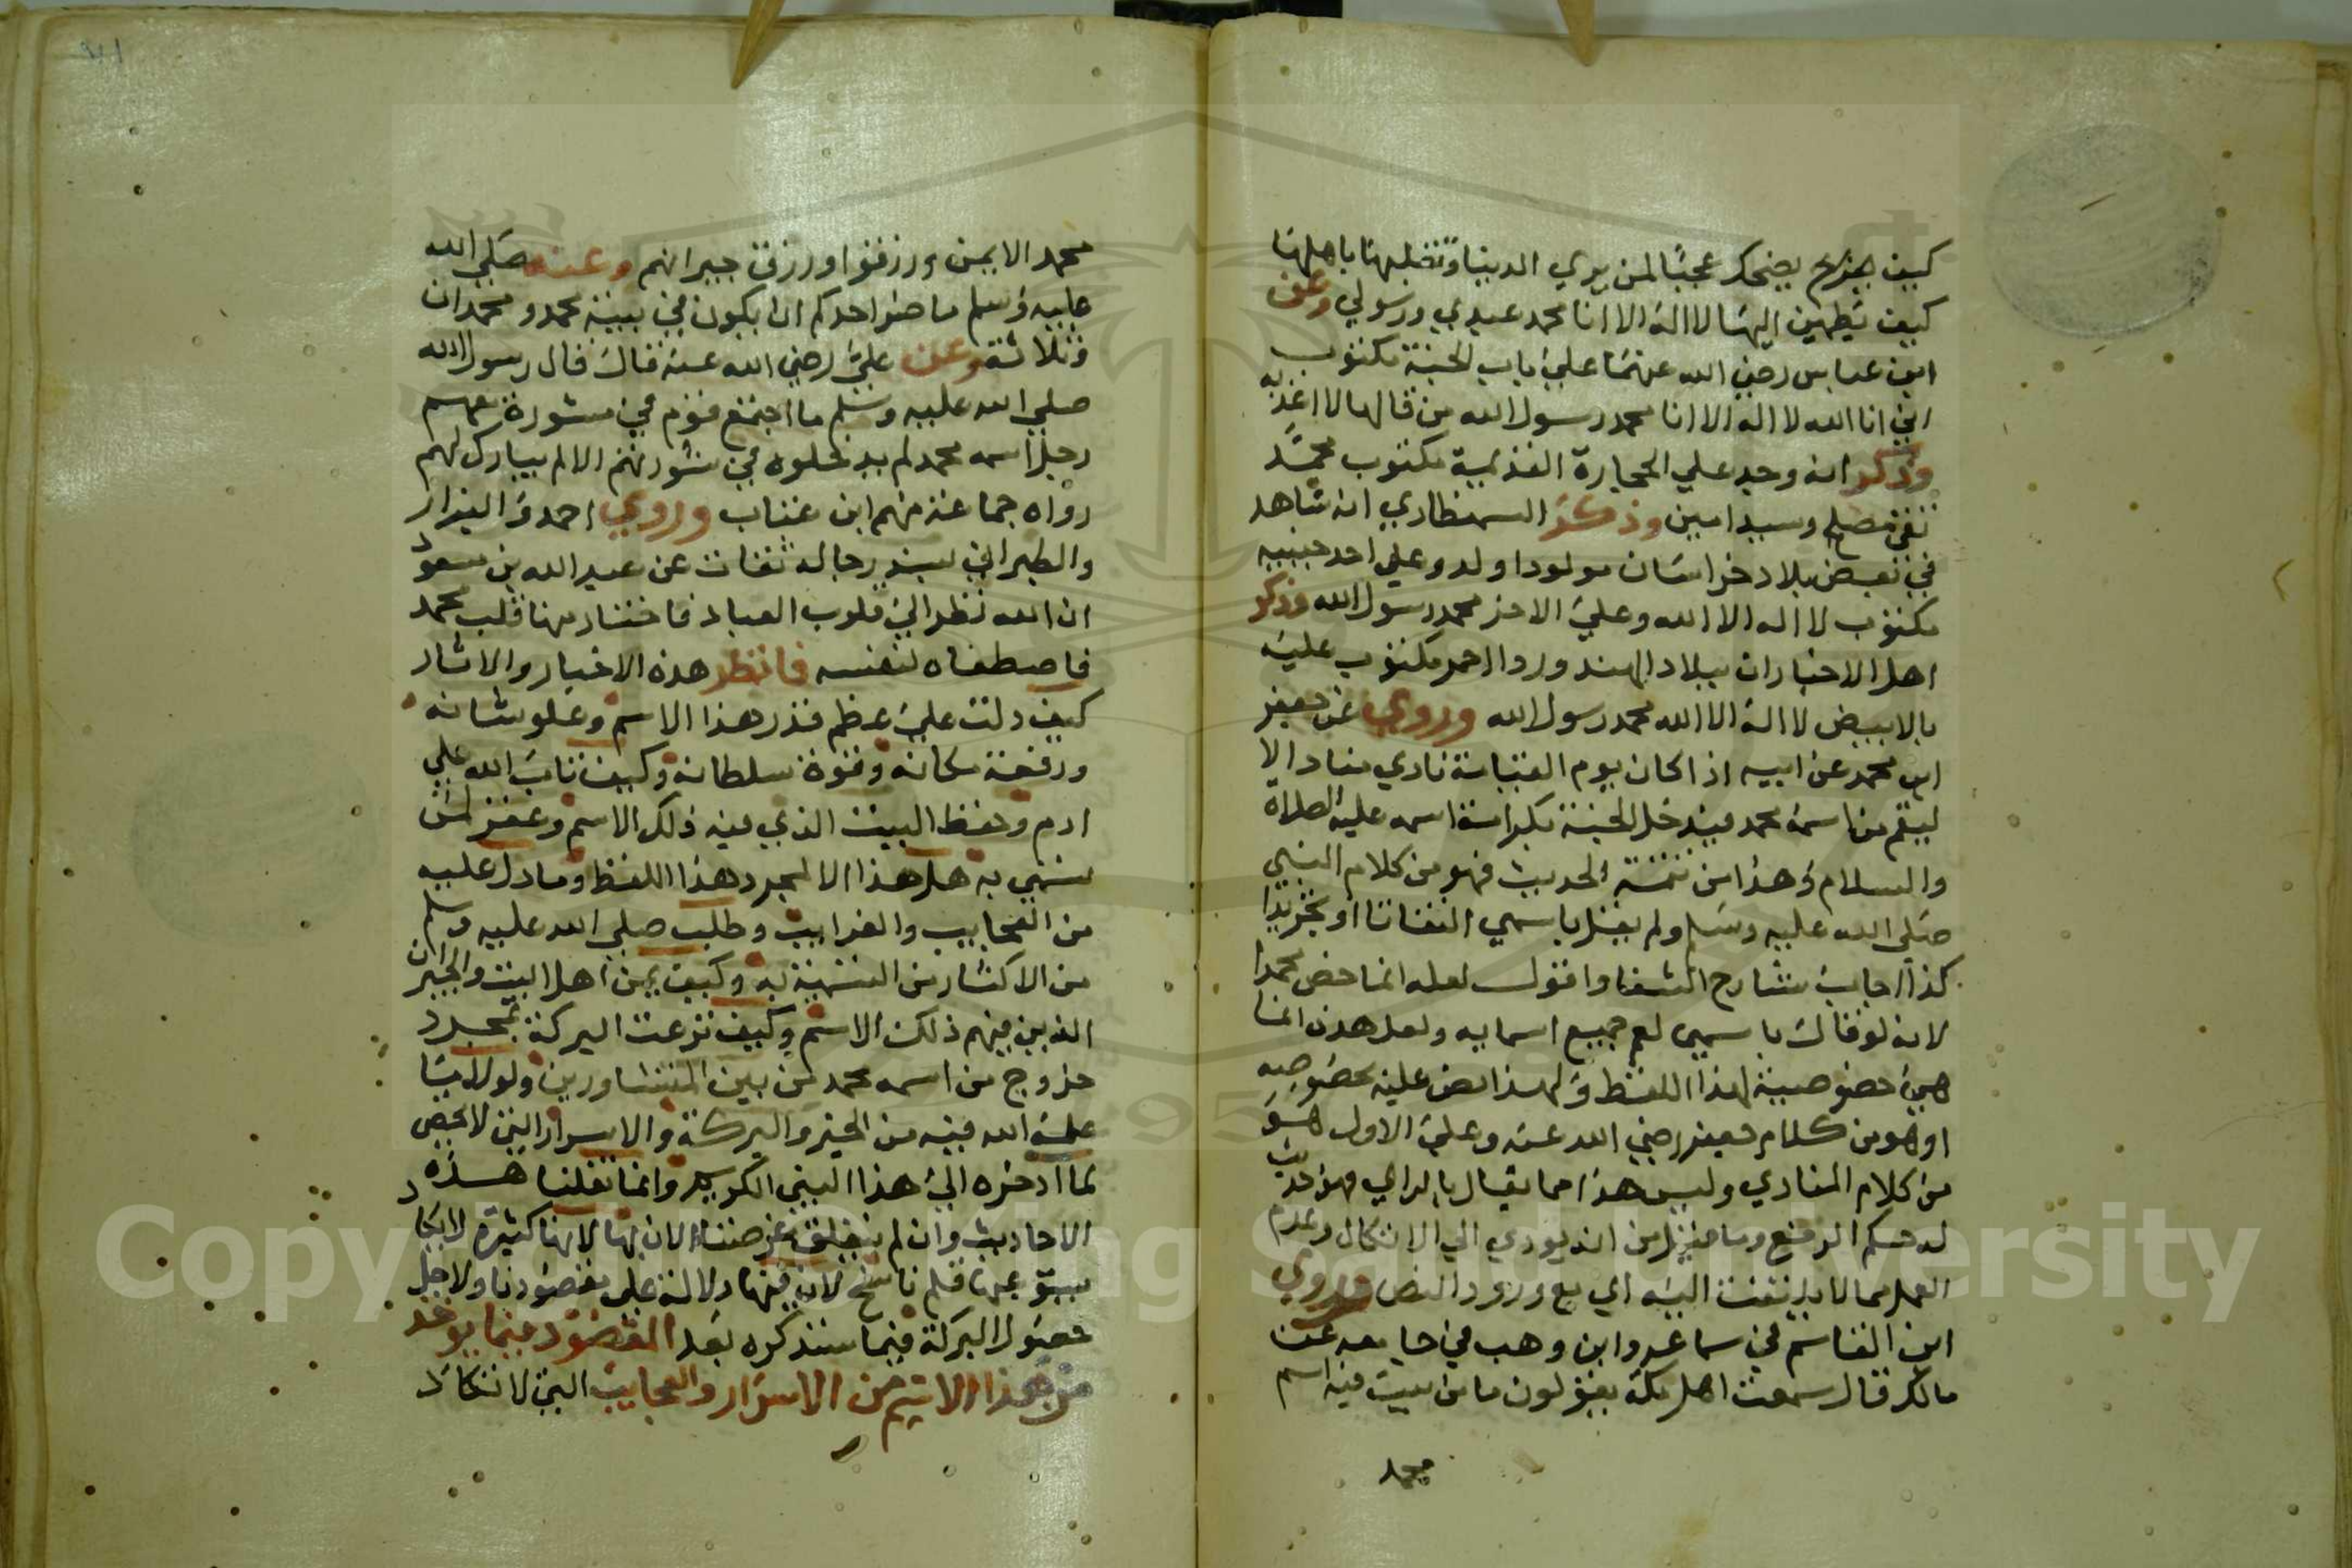 كيف يفرح يضحك عجبا لمن يري الدنيا وتقلبها باهلها
كيف يطمئن اليها لا اله الا انا محمد عبدي ورسولي وعن
ابن عباس رضي الله عنهما علي باب الجنة مكتوب
اني انا الله لا اله الا انا محمد رسول الله من قالها لا اعذبه
وذكر انه وجد علي الحجارة القديمة مكتوب محمد
تقي مصلح وسيد امين وذكر السمنطاري انه شاهد
في بعض بلاد خراسان مولودا ولد وعلي احد جنبيه
مكتوب لا اله الا الله وعلي الاخر محمد رسول الله وذكر
اهل الاخبار ان ببلاد الهند ورد الاحمر مكتوب عليه
بالابيض لا اله الا الله محمد رسول الله وروي عن جعفر
ابن محمد عن ابيه اذا كان يوم القيامة نادي مناد الا
ليقم من اسمه محمد فيدخل الجنة بكرامة اسمه عليه الصلاة
والسلام وهذا من تتمة الحديث فهو من كلام النبي
صلي الله عليه وسلم ولم يقل باسمي التفاتا او تجريدا
كذا اجاب شارح الشفا واقول لعله انما خص محمدا
لانه لو قال باسمي لعم جميع اسمايه ولعل هذه انما
هي خصوصية لهذا اللفظ ولهذا نص عليه بخصوصه
او هو من كلام جعفر رضي الله عنه وعلي الاول هو
من كلام المنادي وليس هذا مما يقال بالراي فهو حديث
له حكم الرفع وما قيل من انه يودي الي الاتكال وعدم
العمل مما لا يلتفت اليه اي مع ورود النص وروي
ابن القاسم في سماعه وابن وهب في جامعه عن
مالك قال سمعت اهل مكة يقولون ما من بيت فيه اسم
محمد
محمد الا يمن ورزقوا ورزق جيرانهم وعنه صلي الله
عليه وسلم ما ضر احدكم ان يكون في بيته محمد ومحمدان
وثلاثة وعن علي رضي الله عنه قال قال رسول الله
صلي الله عليه وسلم ما اجتمع قوم في مشورة معهم
رجل اسمه محمد لم يدخلوه في مشورتهم الا لم يبارك لهم
رواه جماعة منهم ابن عتاب وروي احمد والبزار
والطبراني بسند رجاله ثقات عن عبد الله بن مسعود
ان الله نظر الي قلوب العباد فاختار منها قلب محمد
فاصطفاه لنفسه فانظر هذه الاخبار والاثار
كيف دلت علي عظم قدر هذا الاسم وعلو شانه
ورفعة مكانه وقوة سلطانه وكيف تاب الله علي
ادم وحفظ البيت الذي فيه ذلك الاسم وغفر لمن
سمي به هل هذا الا لمجرد هذا اللفظ وما دل عليه
من العجايب والغرايب وطلب صلي الله عليه وسلم
من الاكثار من التسمية به وكيف يمن اهل البيت والجيران
الذين فيهم ذلك الاسم وكيف نزعت البركة بمجرد
خروج من اسمه محمد من بين المتشاورين ولولا ما
علمه الله فيه من الخير والبركة والاسرار التي لا تحصي
لما ادخره الي هذا النبي الكريم وانما نقلنا هذه
الاحاديث وان لم يتعلق غرضنا الان بها لانها كثيرة لا يكاد
عنها قلم ناسخ لان فيها دلالة علي مقصودنا ولاجل
حصول البركة فيما سنذكره بعد المقصود فيما يوخذ
من هذا الاسم من الاسرار والعجايب التي لا تكاد